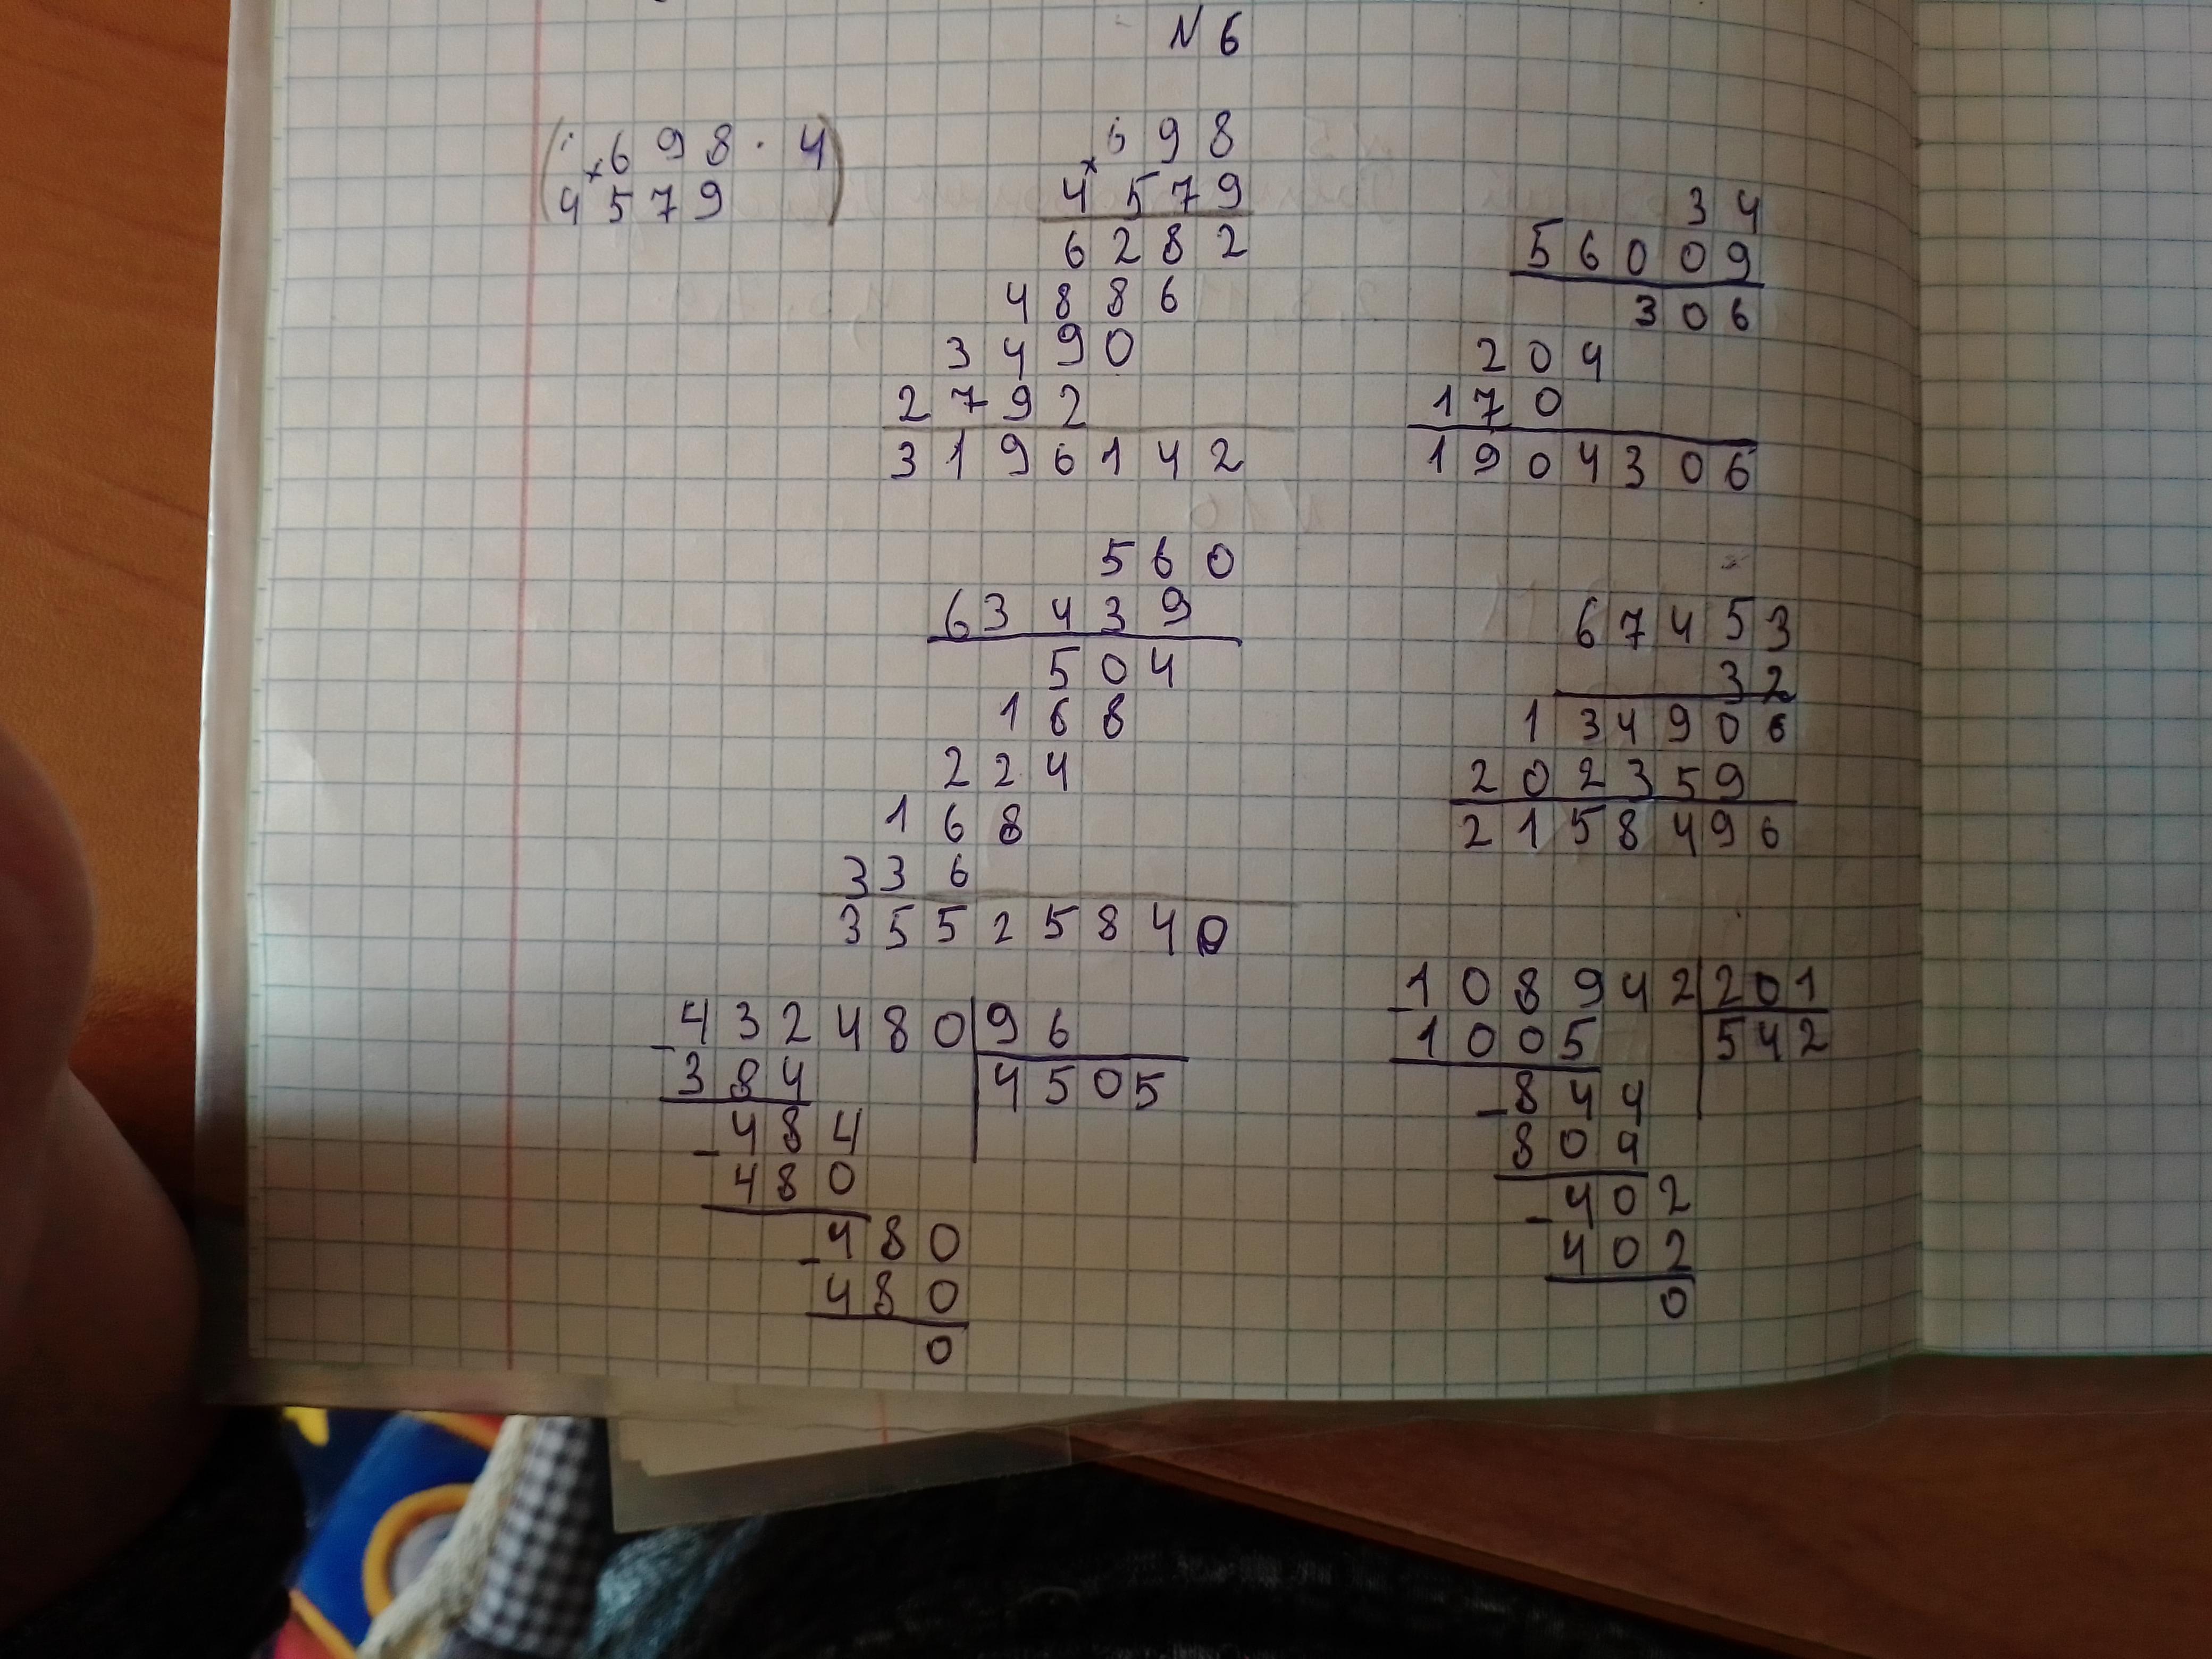 N 6
( × 6 9 8 · 4 )
4 5 7 9
× 6 9 8
4 5 7 9
6 2 8 2
4 8 8 6
3 4 9 0
2 7 9 2
3 1 9 6 1 4 2
3 4
5 6 0 0 9
3 0 6
2 0 4
1 7 0
1 9 0 4 3 0 6
5 6 0
6 3 4 3 9
5 0 4
1 6 8
2 2 4
1 6 8
3 3 6
3 5 5 2 5 8 4 0
6 7 4 5 3
3 2
1 3 4 9 0 6
2 0 2 3 5 9
2 1 5 8 4 9 6
4 3 2 4 8 0 | 9 6
- 3 8 4 | 4 5 0 5
4 8 4
- 4 8 0
4 8 0
- 4 8 0
0
1 0 8 9 4 2 | 2 0 1
- 1 0 0 5 | 5 4 2
8 4 4
- 8 0 4
4 0 2
- 4 0 2
0